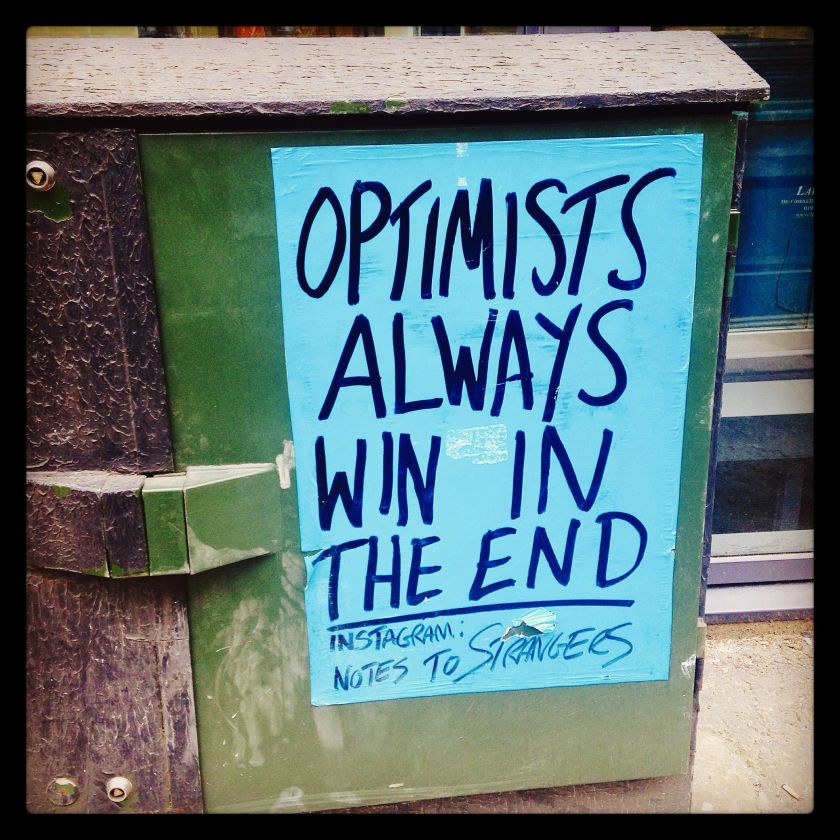 OPTIMISTS
ALWAYS
WIN IN
THE END
INSTAGRAM:
NOTES TO STRANGERS